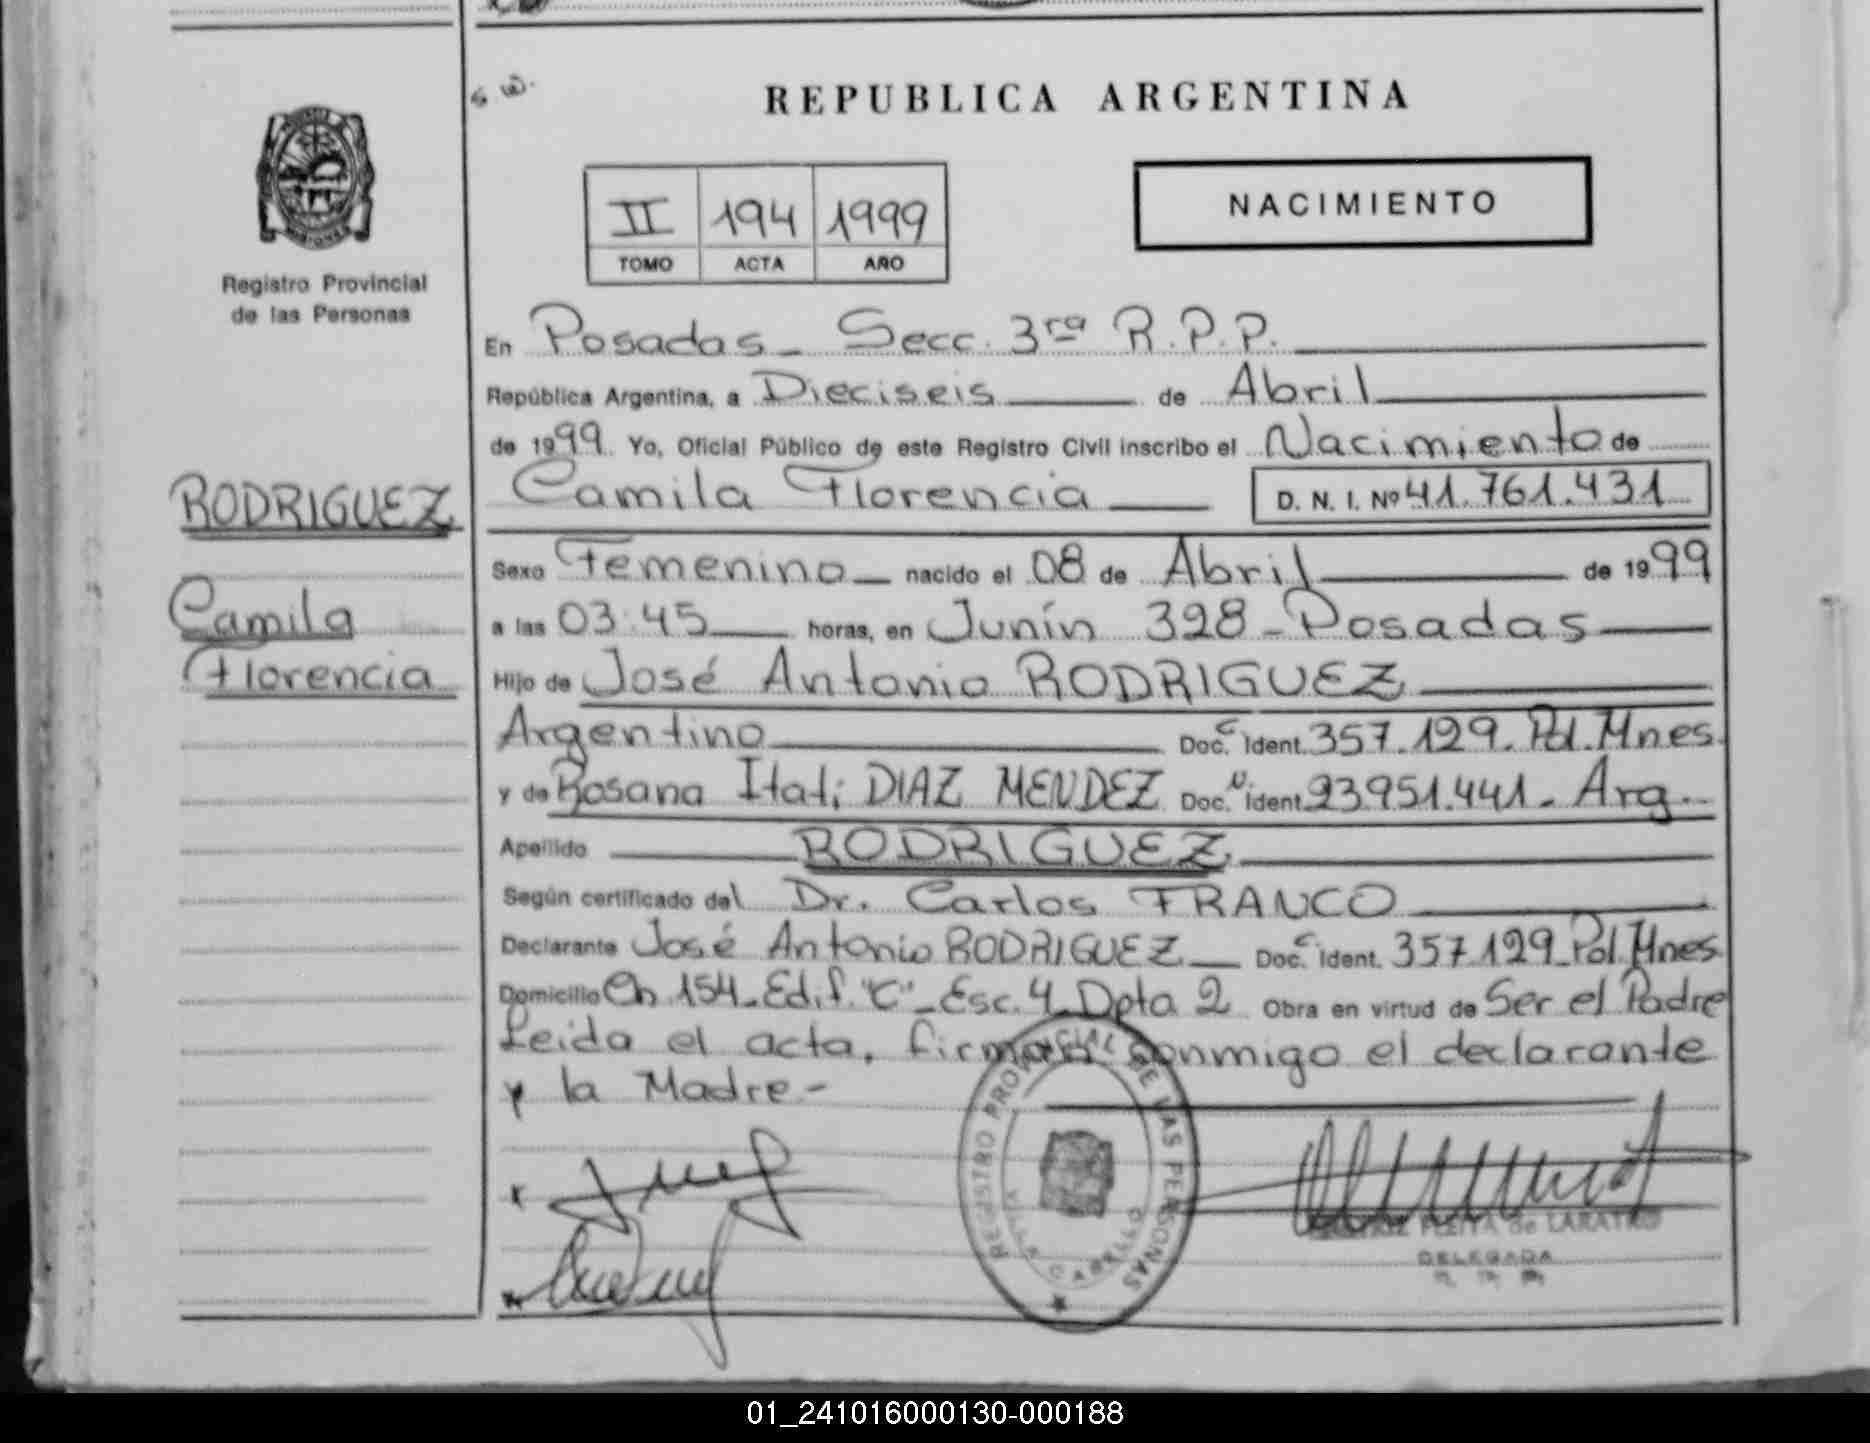 s. w.
REPUBLICA ARGENTINA
II 194 1999
TOMO ACTA AÑO
NACIMIENTO
MISIONES
Registro Provincial
de las Personas
En Posadas - Secc. 3ra R.P.P.
República Argentina, a Dieciseis de Abril
de 1999. Yo, Oficial Público de este Registro Civil inscribo el Nacimiento de
Camila Florencia D. N. I. Nº 41.761.431
RODRIGUEZ
Camila
Florencia
Sexo Femenino nacido el 08 de Abril de 1999
a las 03:45 horas, en Junín 328 - Posadas
Hijo de José Antonio RODRIGUEZ
Argentino Doc. C Ident. 357.129. Pol. Mnes.
y de Rosana Itati DIAZ MENDEZ Doc. N Ident. 23951.441. Arg.
Apellido RODRIGUEZ
Según certificado del Dr. Carlos FRANCO
Declarante José Antonio RODRIGUEZ Doc. C Ident. 357.129 Pol. Mnes
Domicilio Ch 154 - Edif. "C" - Esc. 4 Dpta 2 Obra en virtud de Ser el Padre
Leida el acta, firman conmigo el declarante
y la Madre -
REGISTRO PROVINCIAL DE LAS PERSONAS
VILLA CABELLO
de LARATRO
DELEGADA
01_241016000130-000188